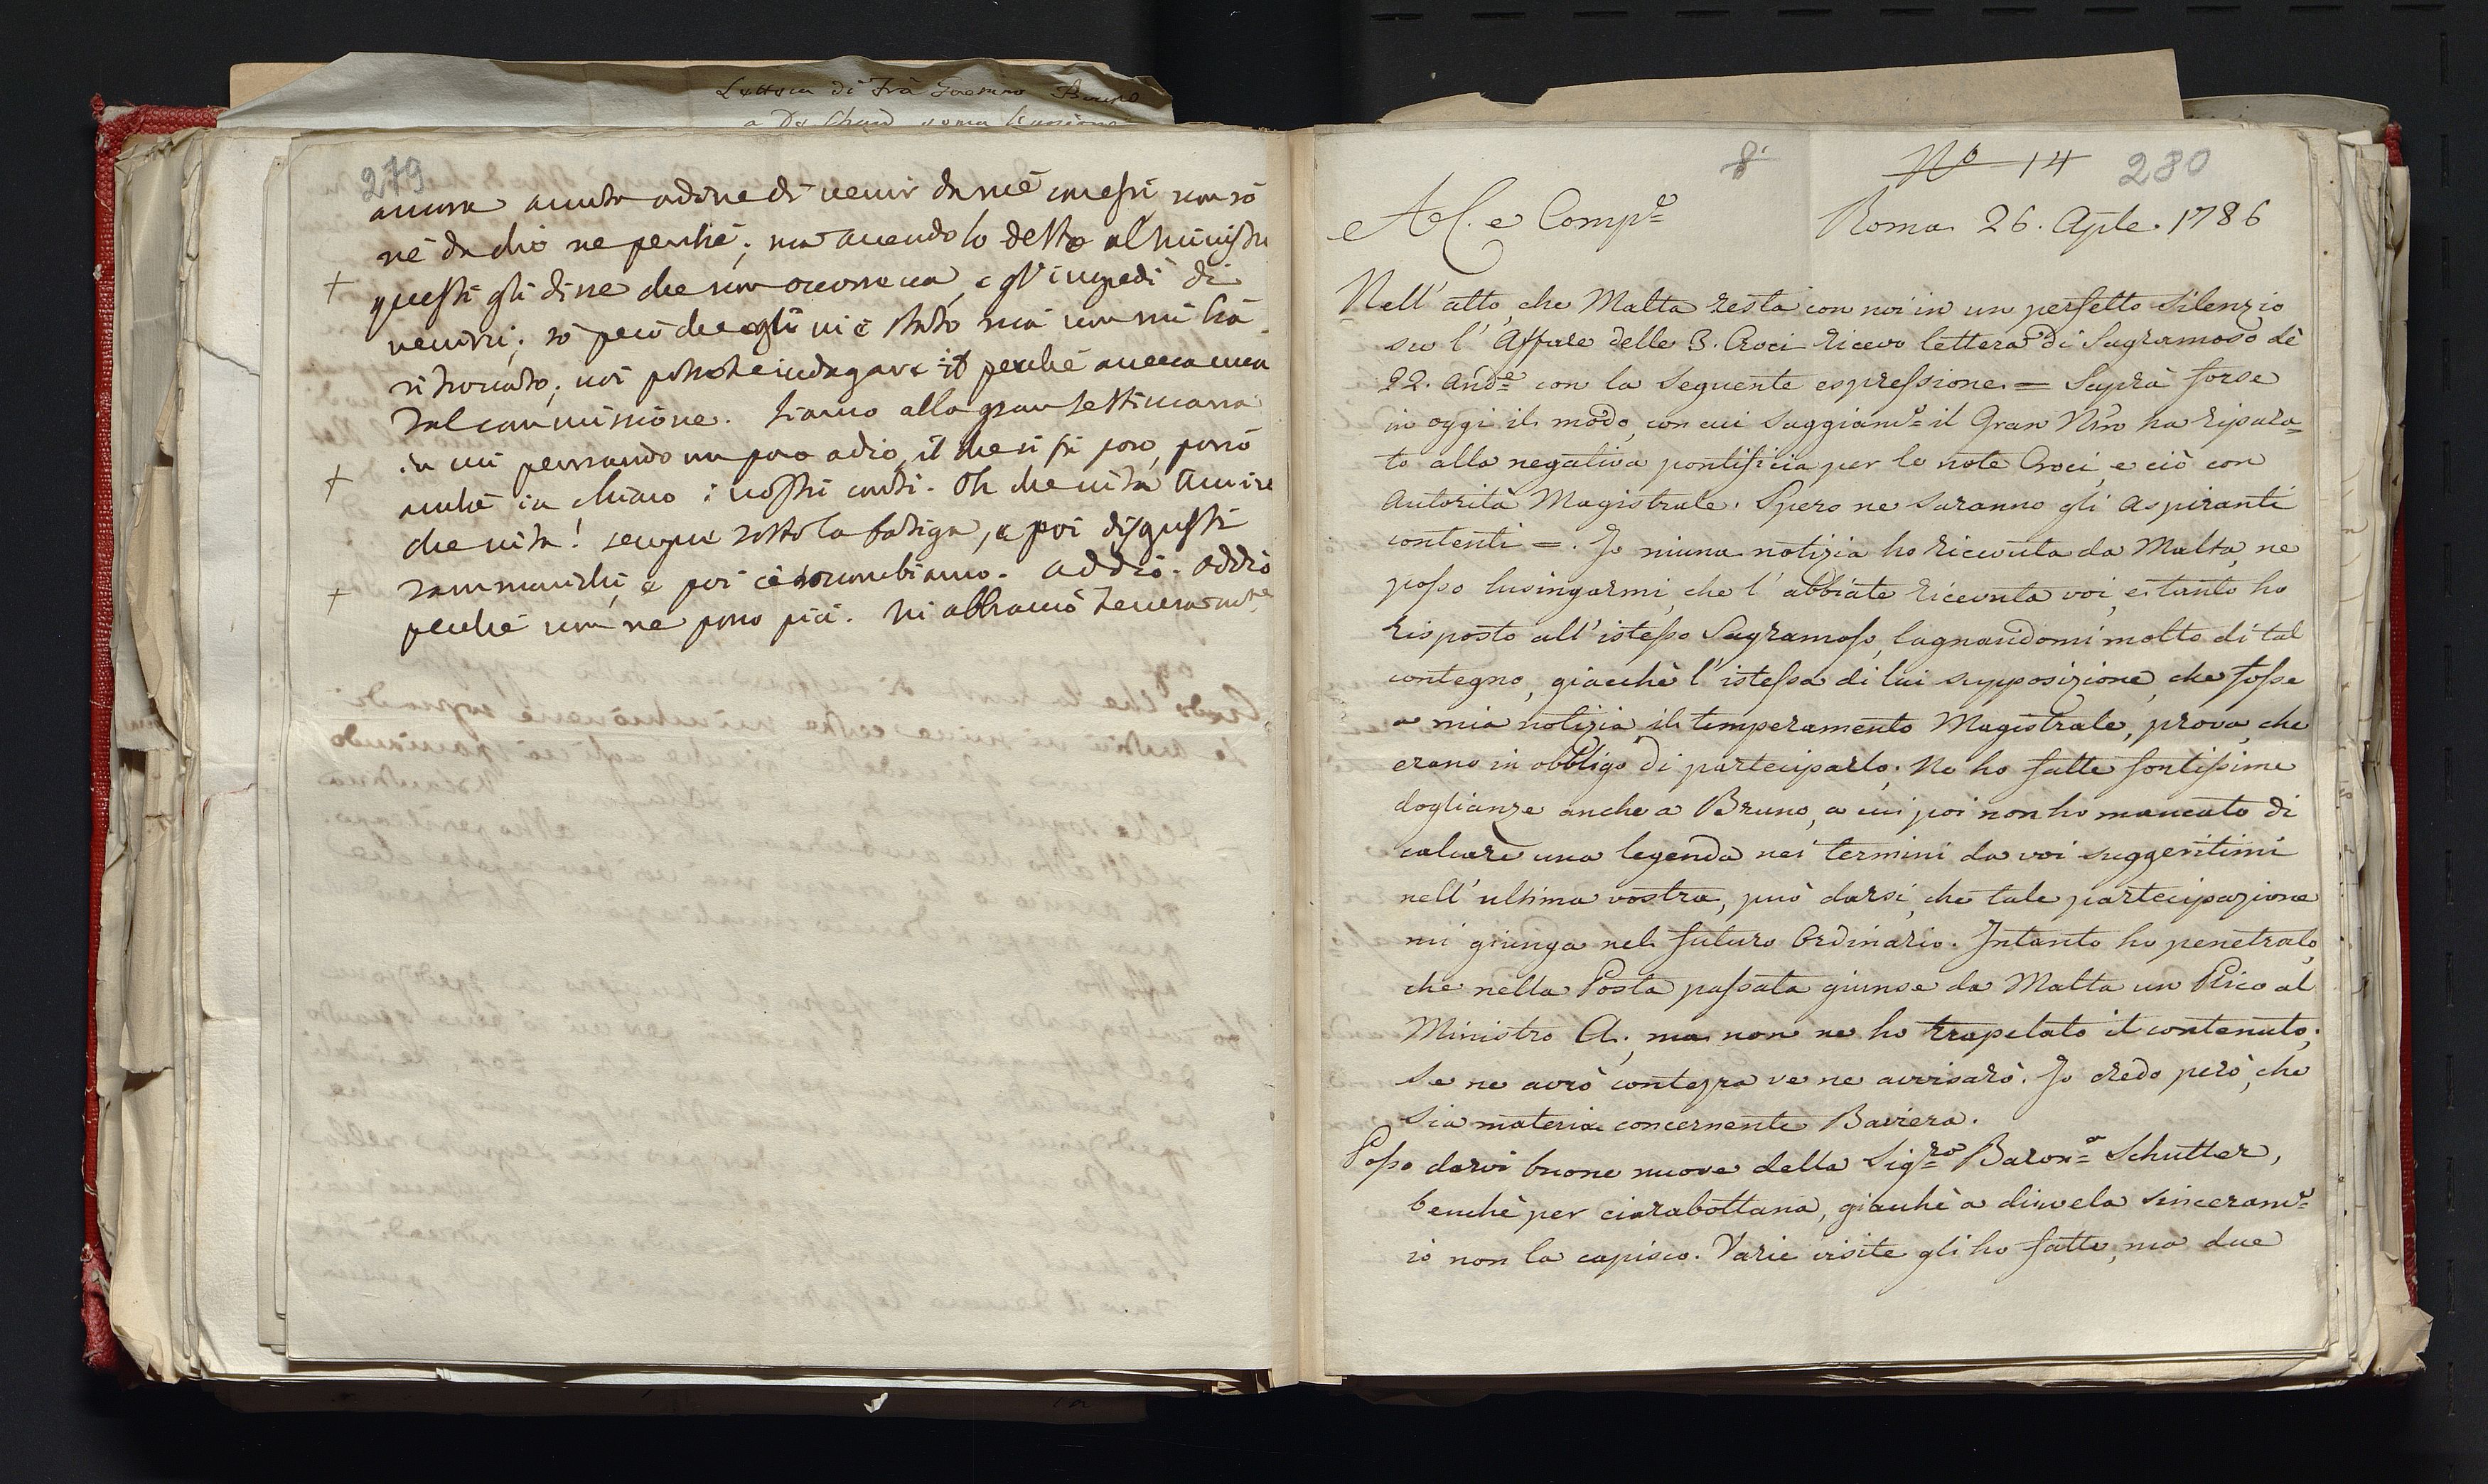 Lettera di Frà Gaetano Bruno
a
279
ancora avuto ordine di venir da mè mà essi non sò
nè da chi ne perchè; ma avendolo detto al ministro
questi gli disse che non occorreva, e gl'impedì di
venirvi; sò però che egli vi è stato mà non mi hà
ritrovato; voi potrete indagare il perchè aveva una
tal commissione. Siamo alla gran settimana
in cui pensando un poco a dio, il che si fà poco, porrò
anche in chiaro i nostri conti. Oh che vita Amico
che vita! sempre sotto la fatiga, e poi disgusti
rammarichi, e poi ci soccombiamo. addio. addio
perchè non ne posso più. Vi abbraccio teneramte
8.
No 14
280
A. C. e Compe
Roma 26. Aple. 1786
Nell' atto, che Malta resta con noi in un perfetto silenzio
su l' Affare delle 3. Croci ricevo lettera di Sagramoso de
22. Ande con la seguente espressione = Saprà forse
in oggi il modo, con cui saggiame il Gran Mro ha ripara=
to alla negativa pontificia per le note Croci, e ciò con
autorità Magistrale. Spero ne saranno gli aspiranti
contenti =. Io niuna notizia ho ricevuta da Malta, ne
posso lusingarmi, che l' abbiate ricevuta voi, e tanto ho
risposto all' istesso Sagramoso, lagnandomi molto di tal
contegno, giacchè l' istessa di lui supposizione, che fosse
a mia notizia il temperamento Magistrale, prova, che
erano in obbligo di parteciparlo. Ne ho fatte fortissime
doglianze anche a Bruno, a cui poi non ho mancato di
calcare una legenda nei termini da voi suggeritimi
nell' ultima vostra, può darsi, che tale partecipazione
mi giunga nel futuro Ordinario. Intanto ho penetrato,
che nella Posta passata giunse da Malta un Plico al
Ministro A., ma non ne ho trapelato il contenuto;
se ne avrò contezza ve ne avvisarò. Io credo però, che
sia materia concernente Baviera.
Posso darvi buone nuove della Sigra Barona Schutter,
benchè per ciarabottana, giacchè a dirvela sinceram=
io non la capisco. Varie visite gli ho fatte, ma due